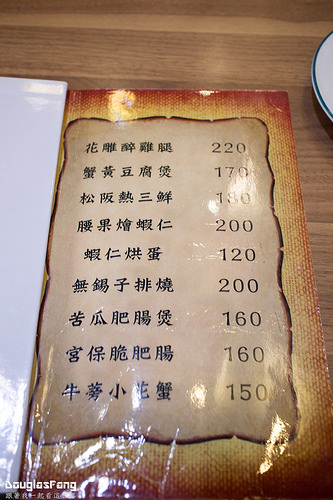 花雕醉雞腿 220
蟹黃豆腐煲 170
松阪熱三鮮 180
腰果燴蝦仁 200
蝦仁烘蛋 120
無錫子排燒 200
苦瓜肥腸煲 160
宮保脆肥腸 160
牛蒡小花蟹 150
DouglasFong
跟著我一起看這